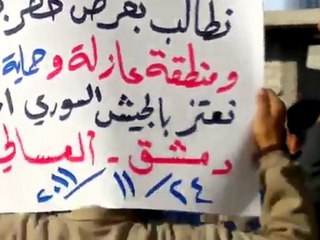 نطالب بفرض حظر
ومنطقة عازلة وحماية
نعتز بالجيش السوري ا
دمشق - العسالي
٢٠١١/١١/٢٤